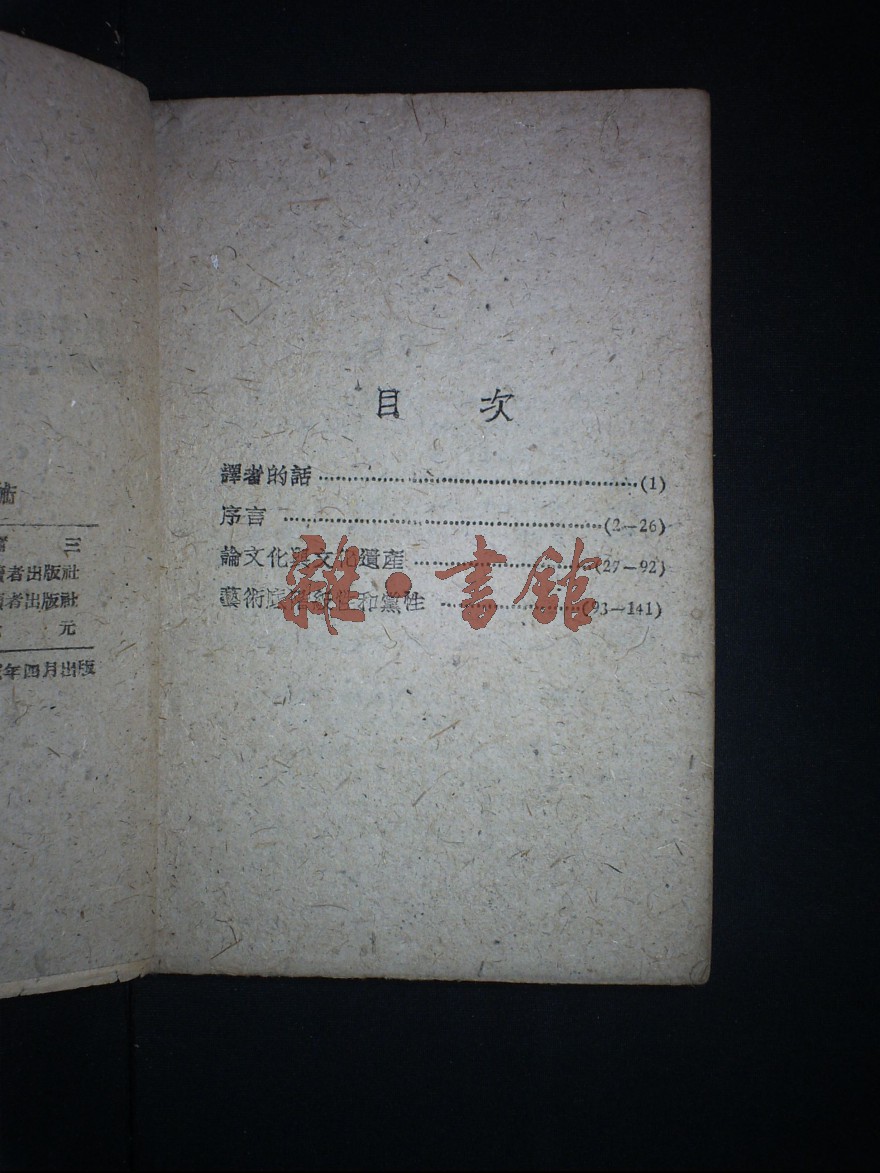 目 次
譯者的話(1)
序言(2—26)
論文化與文化遺產(27—92)
藝術底階級性和黨性(93—141)
術
三
者出版社
者出版社
元
年四月出版
雜·書館